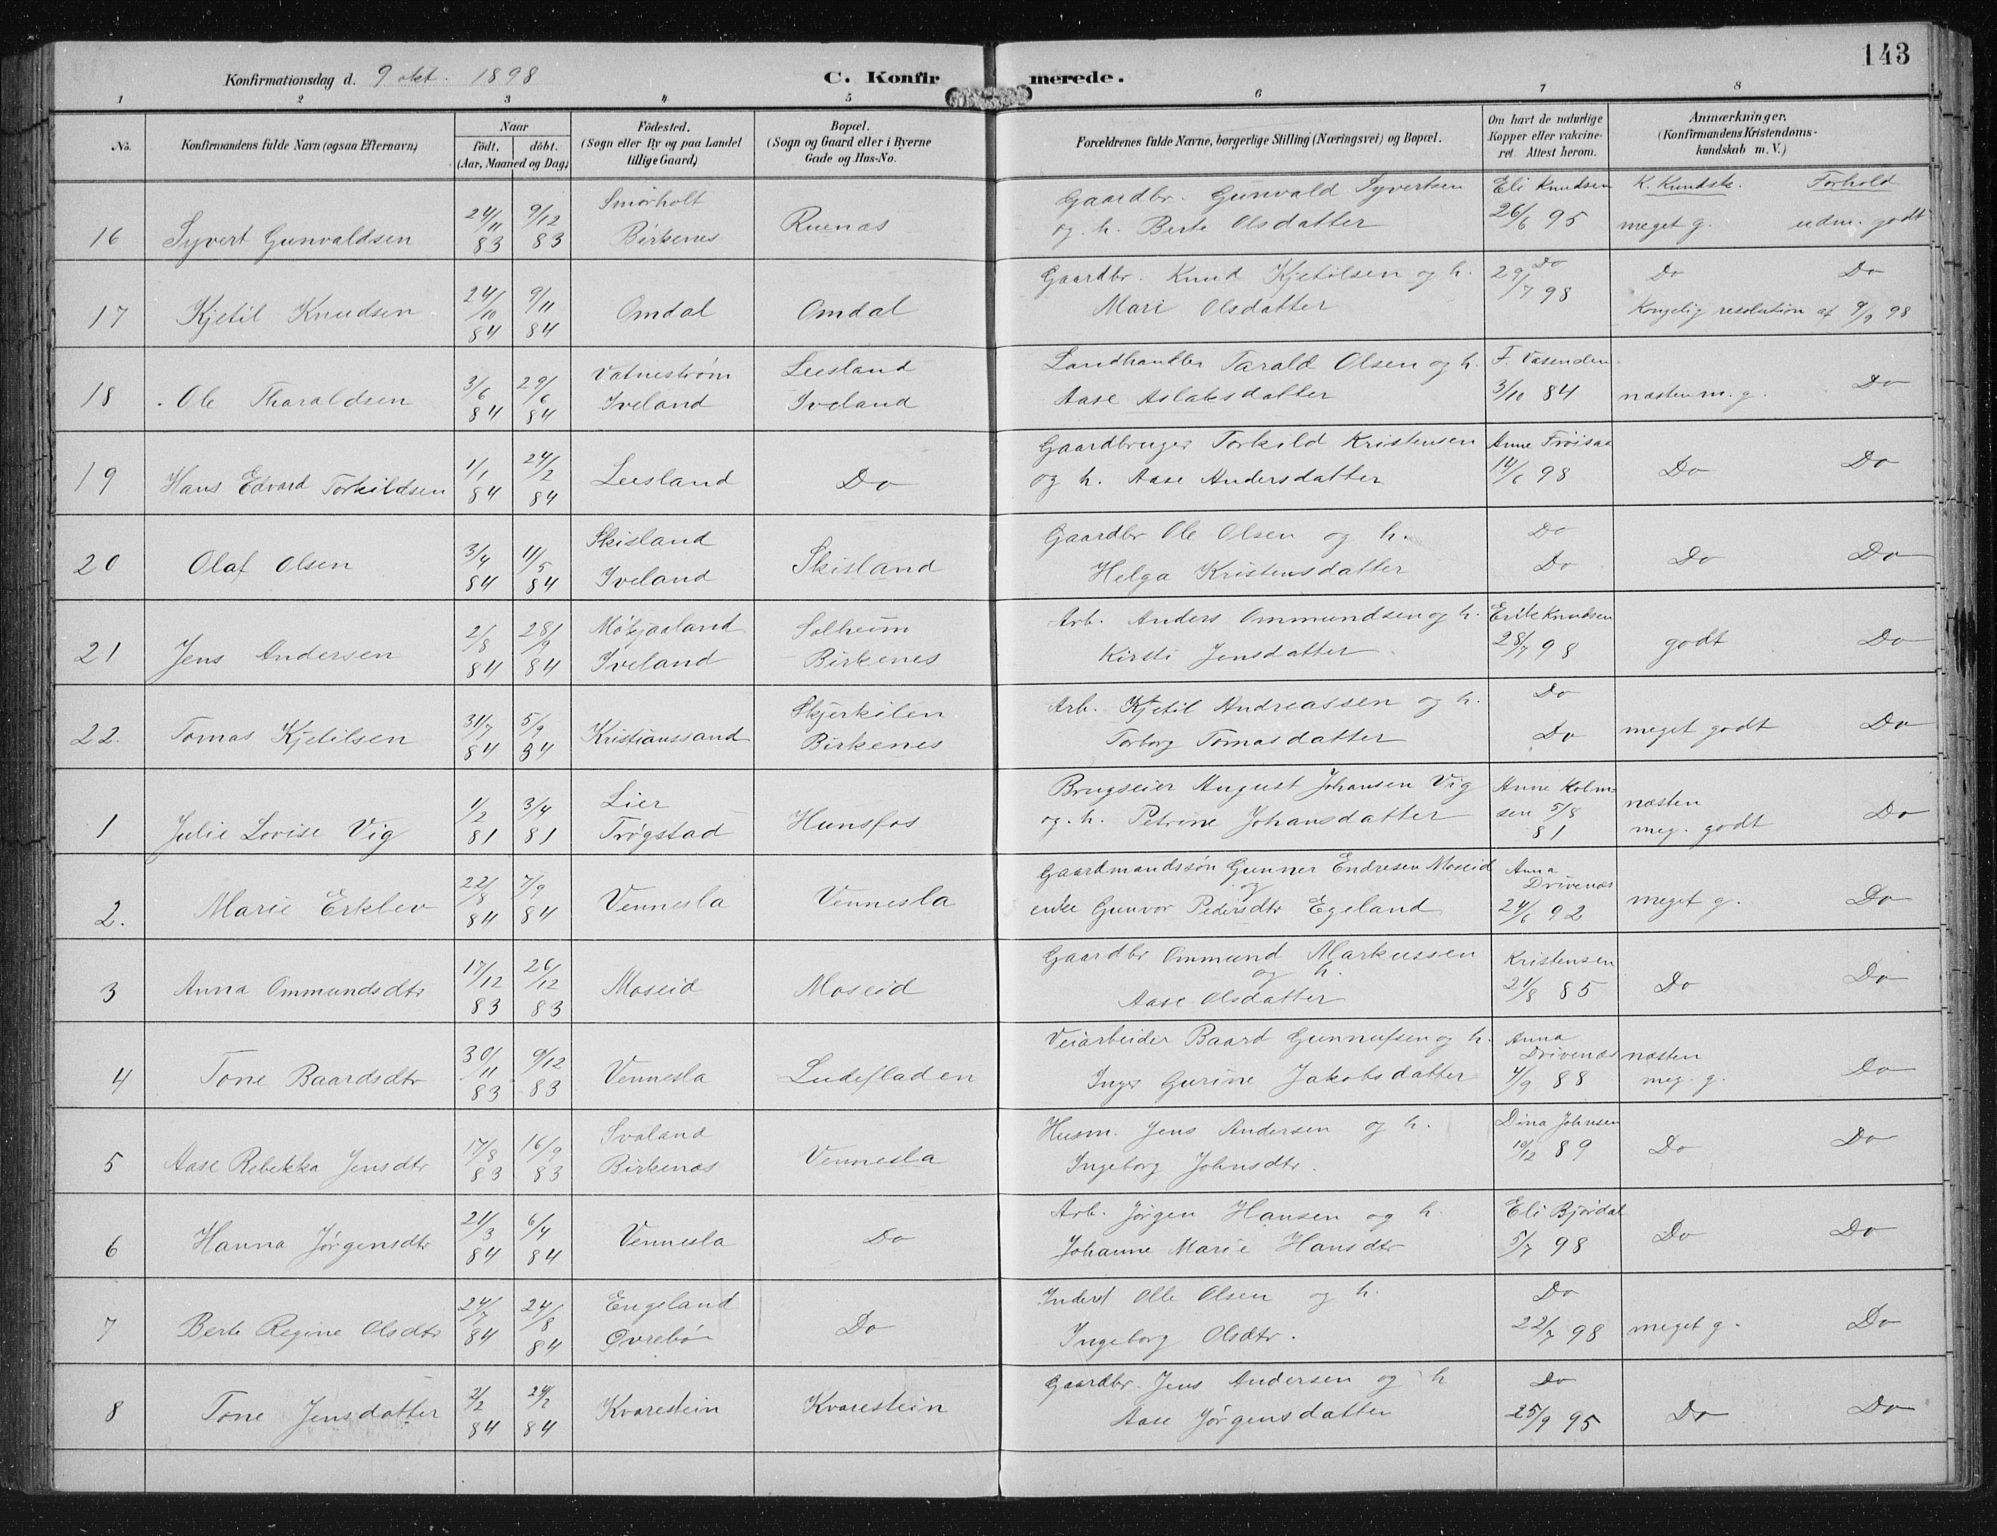 143
Konfirmationsdag d. 9 okt. 1898
C. Konfirmerede.
1 2 3 4 5 6 7 8
No. Konfirmandens fulde Navn (ogsaa Efternavn)
Naar født. døbt. (Aar, Maaned og Dag)
Fødested. (Sogn eller By og paa Landet tillige Gaard)
Bopæl. (Sogn og Gaard eller i Byerne Gade og Hus-No.
Forældrenes fulde Navne, borgerlige Stilling (Næringsvei) og Bopæl.
Om havt de naturlige Kopper eller vakcineret. Attest herom.
Anmærkninger. (Konfirmandens Kristendomskundskab m. V.)
K. Kundsk. Forhold
16 Syvert Gunvaldsen 24/11 83 9/12 83 Smørholt Birkenes Ruenæs Gaardbr. Gunvald Syvertsen
og. h. Berte Olsdatter Eli Knudsen 26/6 95 meget g. udm. godt
17 Kjetil Knudsen 24/10 84 9/11 84 Omdal Omdal Gaardbr. Knud Kjetilsen og h.
Mari Olsdatter Do 29/7 98 Do Do
Kongelig resolution af 9/9 98
18 Ole Tharaldsen 3/6 84 29/6 84 Vatnestrøm Iveland Leesland Iveland Landhandler Tarald Olsen og h.
Aase Aslaksdatter F. Vasenden 3/10 84 næsten m. g. Do
19 Hans Edvard Torkildsen 1/1 84 24/2 84 Leesland Do Gaardbruger Torkild Kristensen
og h. Aase Andersdatter Anne Frøisaa 14/6 98 Do Do
20 Olaf Olsen 3/4 84 11/5 84 Skisland Iveland Skisland Gaardbr Ole Olsen og h.
Helga Kristensdatter Do Do Do Do
21 Jens Andersen 2/8 84 28/9 84 Møkjaaland Iveland Solheim Birkenes Arb. Anders Ommundsen og h.
Kirsti Jensdatter Erik Knudsen 28/7 98 godt Do
22. Tomas Kjetilsen 31/7 84 5/9 84 Kristianssand Skjerkilen Birkenes Arb. Kjetil Andreassen og h.
Torborg Tomasdatter Do Do meget godt Do
1 Julie Lovise Vig 1/2 81 3/4 81 Lier Trøgstad Hunsfos Brugseier August Johansen Vig
og. h. Petrine Johansdatter Anne Holmsen 5/8 81 næsten meg. godt Do
2. Marie Erklev 22/8 84 7/9 84 Vennesla Vennesla Gaardmandssøn Gunner Endresen Moseid
og
enke Gunvor Pedersdtr Egeland Anna Drivenæs 24/6 92 meget g. Do
3 Anna Ommundsdtr 17/12 83 26/12 83 Moseid Moseid Gaardbr Ommund Markussen
og h.
Aase Olsdatter Kristensen 21/8 85 Do Do
4 Tone Baardsdtr 30/11 83 9/12 83 Vennesla Ludefladen Veiarbeider Baard Gunnufsen og h.
Inger Gurine Jakobsdatter Anna Drivenæs 4/9 88 næsten meg. g. Do
5 Aase Rebekka Jensdtr 17/8 83 16/9 83 Svaland Birkenæs Vennesla Husm. Jens Andersen og h.
Ingeborg Johnsdtr. Dina Johnsen 10/12 89 Do Do
6 Hanna Jørgensdtr 21/3 84 6/4 84 Vennesla Do Arb. Jørgen Hansen og h.
Johanne Marie Hansdtr Eli Bjørdal 5/7 98 Do Do
7 Berte Regine Olsdtr 24/7 84 24/8 84 Engeland Øvrebø Do Inderst Olle Olsen og h.
Ingeborg Olsdtr. Do 22/7 98 meget g. Do
8 Tone Jensdatter 2/2 84 24/2 84 Kvarestein Kvarestein Gaardbr. Jens Andersen og h
Aase Jørgensdatter Do 25/9 95 Do Do